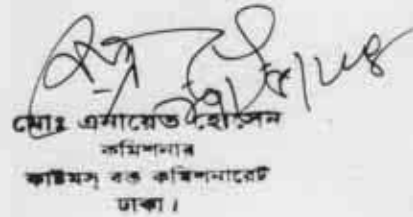 মোঃ এনায়েত হোসেন
কমিশনার
কাস্টমস্ বন্ড কমিশনারেট
ঢাকা।